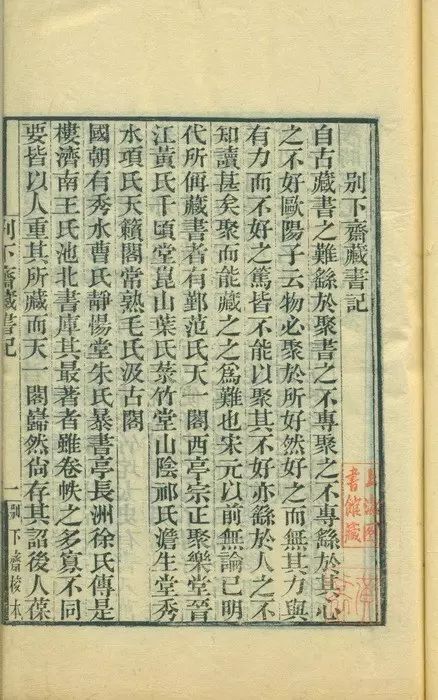 別下齋藏書記
自古藏書之難繇於聚書之不專聚之不專繇於其心
之不好歐陽子云物必聚於所好然好之而無其力與
有力而不好之篤皆不能以聚其不好亦繇於人之不
知讀甚矣聚而能藏之之為難也宋元以前無論已明
代所偁藏書者有鄞范氏天一閣西亭宗正聚樂堂晉
江黃氏千頃堂崑山葉氏菉竹堂山陰祁氏澹生堂秀
水項氏天籟閣常熟毛氏汲古閣
國朝有秀水曹氏靜惕堂朱氏暴書亭長洲徐氏傳是
樓濟南王氏池北書庫其最著者雖卷帙之多寡不同
要皆以人重其所藏而天一閣巋然尙存其詔後人葆
別下齋藏書記
一
別下齋校本
上海圖
書館藏